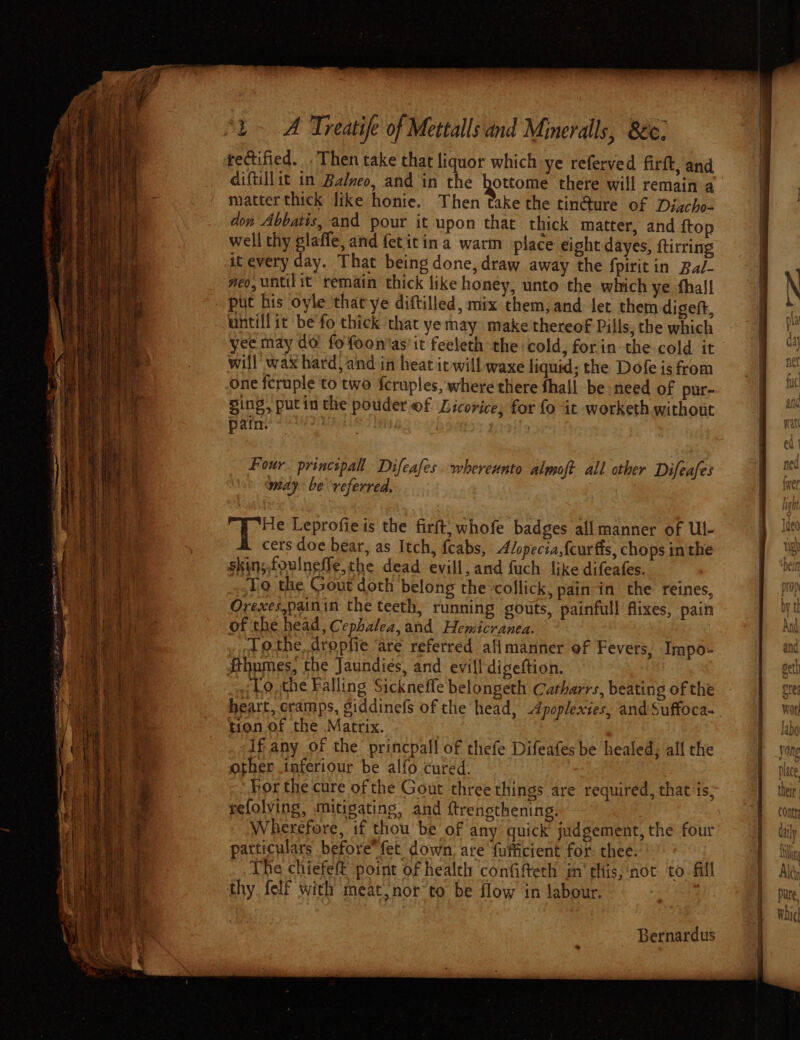 A Treatiſe of Mettalls and Mineralls, &c.
rectified. Then take that liquor which ye reſerved firſt, and
diſtill it in Balneo, and in the bottome there will remain a
matter thick like honie. Then take the tincture of Diacho-
don Abbatis, and pour it upon that thick matter, and ſtop
well thy glaſſe, and ſet it in a warm place eight dayes, ſtirring
it every day. That being done, draw away the ſpirit in Bal-
neo, until it remain thick like honey, unto the which ye ſhall
put his oyle that ye diſtilled, mix them, and let them digeſt,
untill it be ſo thick that ye may make thereof Pills, the which
yee may do ſo ſoon as it feeleth the cold, for in the cold it
will wax hard, and in heat it will waxe liquid; the Doſe is from
one ſcruple to two ſcruples, where there ſhall be need of pur-
ging, put in the pouder of Licorice, for ſo it worketh without
pain.
Four principall Diſeaſes whereunto almoſt all other Diſeaſes
may be referred.
THe Leproſie is the firſt, whoſe badges all manner of Ul-
cers doe bear, as Itch, ſcabs, Alopecia, ſcurffs, chops in the
skin, foulneſſe, the dead evill, and ſuch like diſeaſes.
To the Gout doth belong the collick, pain in the reines,
Orexes, pain in the teeth, running gouts, painfull flixes, pain
of the head, Cephalea, and Hemicranea.
To the dropſie are referred all manner of Fevers, Impo-
ſthumes, the Jaundies, and evill digeſtion.
To the Falling Sickneſſe belongeth Catharrs, beating of the
heart, cramps, giddineſs of the head, Apoplexies, and Suffoca-
tion of the Matrix.
If any of the princpall of theſe Diſeaſes be healed, all the
other inferiour be alſo cured.
For the cure of the Gout three things are required, that is,
reſolving, mitigating, and ſtrengthening.
Wherefore, if thou be of any quick judgement, the four
particulars before ſet down are ſufficient for thee.
The chiefeſt point of health conſiſteth in this, not to fill
thy ſelf with meat, nor to be ſlow in labour.
Bernardus